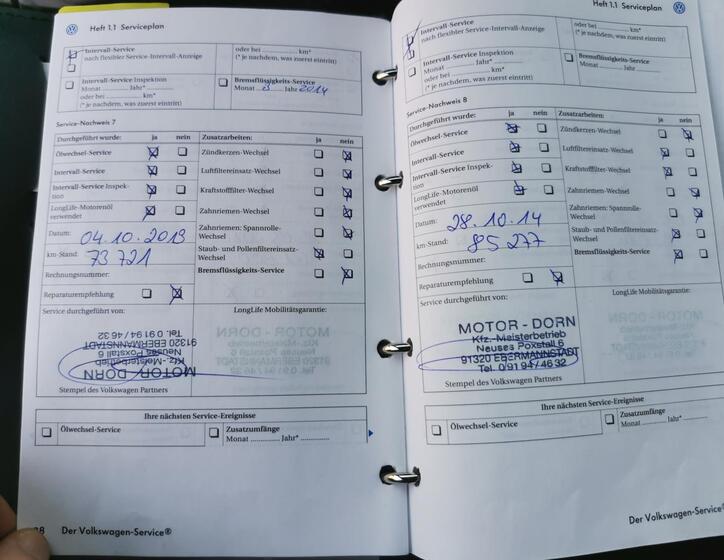 Heft 1.1 Serviceplan
Intervall-Service
nach flexibler Service-Intervall-Anzeige
oder bei .................... km*
(* je nachdem, was zuerst eintritt)
Intervall-Service Inspektion
Monat ............ Jahr* ............
oder bei .................... km*
(* je nachdem, was zuerst eintritt)
Bremsflüssigkeits-Service
Monat 8 Jahr 2014
Service-Nachweis 7
Durchgeführt wurde: ja nein
Zusatzarbeiten: ja nein
Ölwechsel-Service
Zündkerzen-Wechsel
Intervall-Service
Luftfiltereinsatz-Wechsel
Intervall-Service Inspek-
tion
Kraftstofffilter-Wechsel
LongLife-Motorenöl
verwendet
Zahnriemen-Wechsel
Datum: 04.10.2013
Zahnriemen: Spannrolle-
Wechsel
km-Stand: 73 721
Staub- und Pollenfiltereinsatz-
Wechsel
Rechnungsnummer:
Bremsflüssigkeits-Service
Reparaturempfehlung
Service durchgeführt von:
LongLife Mobilitätsgarantie:
MOTOR-DORN
Kfz.-Meisterbetrieb
Neuses Poxstall 6
91320 EBERMANNSTADT
Tel. 0 91 94 / 46 32
Stempel des Volkswagen Partners
Ihre nächsten Service-Ereignisse
Ölwechsel-Service
Zusatzumfänge
Monat ............ Jahr* ............
Der Volkswagen-Service®
Heft 1.1 Serviceplan
Intervall-Service
nach flexibler Service-Intervall-Anzeige
oder bei .................... km*
(* je nachdem, was zuerst eintritt)
Intervall-Service Inspektion
Monat ............ Jahr* ............
oder bei .................... km*
(* je nachdem, was zuerst eintritt)
Bremsflüssigkeits-Service
Monat ............ Jahr ............
Service-Nachweis 8
Durchgeführt wurde: ja nein
Zusatzarbeiten: ja nein
Ölwechsel-Service
Zündkerzen-Wechsel
Intervall-Service
Luftfiltereinsatz-Wechsel
Intervall-Service Inspek-
tion
Kraftstofffilter-Wechsel
LongLife-Motorenöl
verwendet
Zahnriemen-Wechsel
Datum: 28.10.14
Zahnriemen: Spannrolle-
Wechsel
km-Stand: 85 277
Staub- und Pollenfiltereinsatz-
Wechsel
Rechnungsnummer:
Bremsflüssigkeits-Service
Reparaturempfehlung
Service durchgeführt von:
LongLife Mobilitätsgarantie:
MOTOR - DORN
Kfz.-Meisterbetrieb
Neuses Poxstall 6
91320 EBERMANNSTADT
Tel. 0 91 94 / 46 32
Stempel des Volkswagen Partners
Ihre nächsten Service-Ereignisse
Ölwechsel-Service
Zusatzumfänge
Monat ............ Jahr* ............
Der Volkswagen-Service®